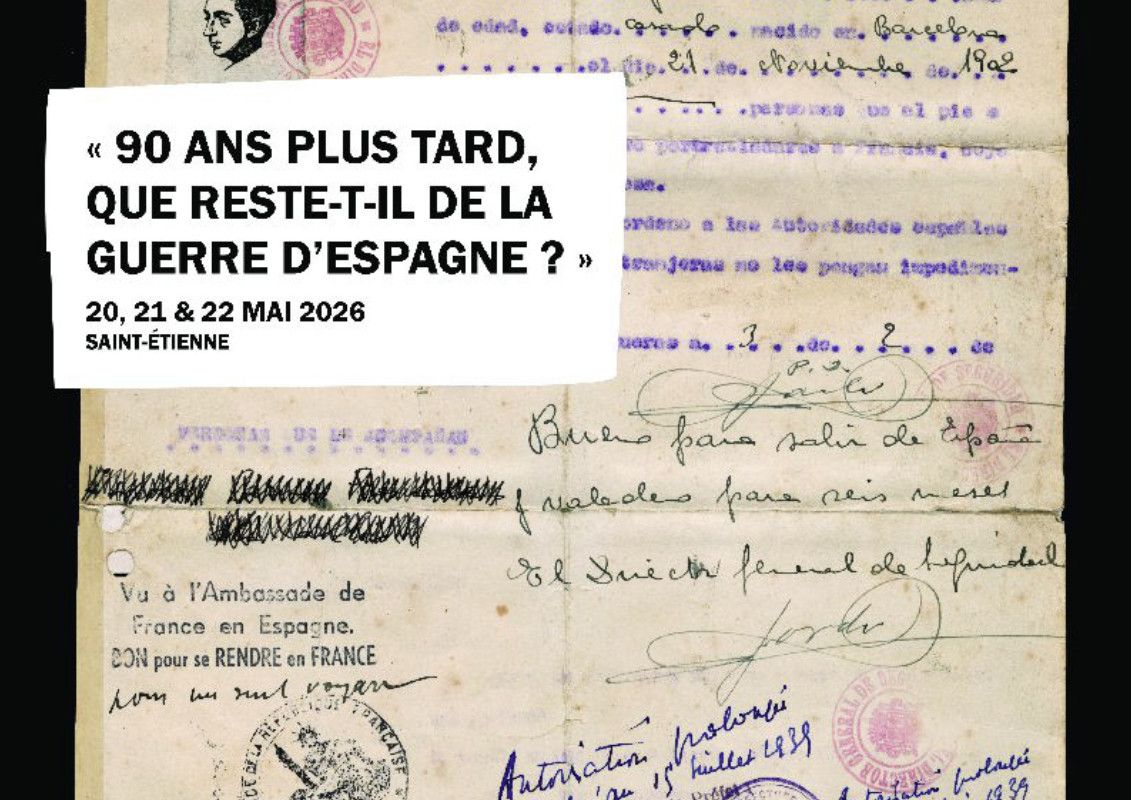 de edad, estado. casado. nacido en. Barcelona
el día. 21. de. Noviembre de. 1902
personas que al pie s
« 90 ANS PLUS TARD,
QUE RESTE-T-IL DE LA
GUERRE D’ESPAGNE ? »
20, 21 & 22 MAI 2026
SAINT-ÉTIENNE
Francia,
ordeno a las Autoridades españolas
tranjeras no les pongan impedimen-
ueras a. 3 . . de. . 2 . . . de
PERSONAS QUE LE ACOMPAÑAN
Bueno para salir de España
y valedero para seis meses
El Director general de Seguridad
Vu à l'Ambassade de
France en Espagne.
BON pour se RENDRE en FRANCE
pour un seul voyage
RÉPUBLIQUE FRANÇAISE
Autorisation prolongée
15 Juillet 1939
prolongée
1939